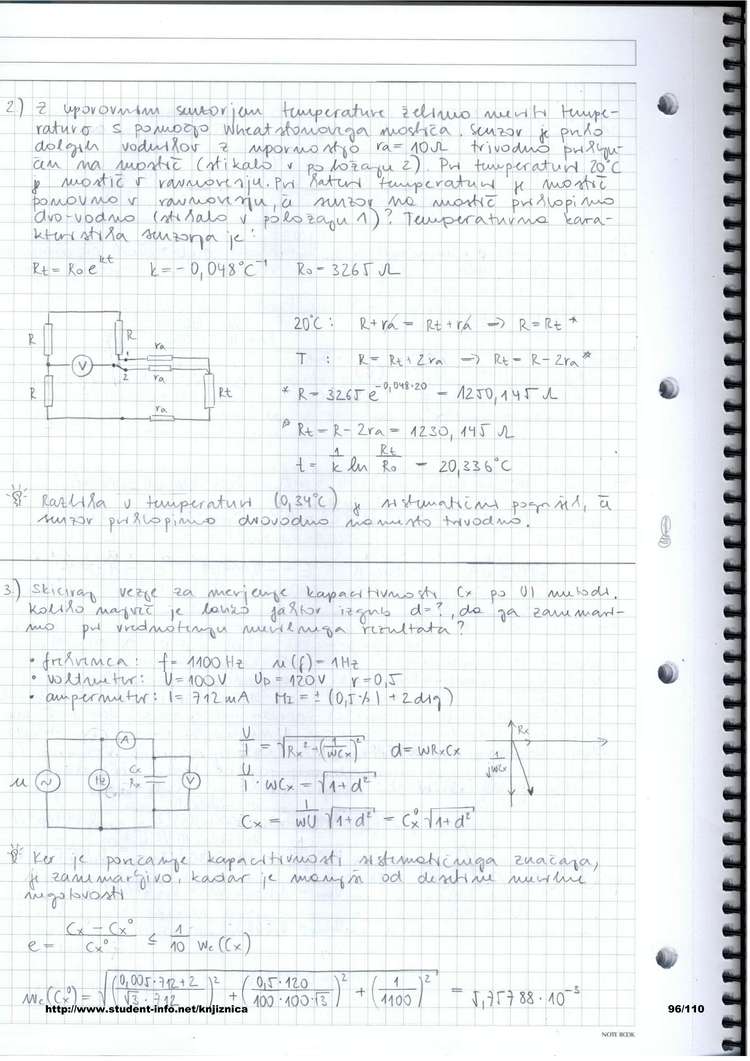 2.) Z uporovnim senzorjem temperature želimo meriti tempe-
raturo s pomočjo Wheatstonovega mostiča. Senzor je preko
dolgih vodnikov z upornostjo ra = 10Ω trivodno priklju-
čen na mostič (stikalo v položaju 2). Pri temperaturi 20°C
je mostič v ravnovesju. Pri kateri temperaturi je mostič
ponovno v ravnovesju, če senzor na mostič priklopimo
dvo-vodno (stikalo v položaju 1)? Temperaturna kara-
kteristika senzorja je:
Rt = R0 e^kt k = -0,048°C^-1 R0 = 3265 Ω
R R ra 1 V 2 ra R Rt ra
20°C: R + ra = Rt + ra => R = Rt *
T : R = Rt + 2ra => Rt = R - 2ra
* R = 3265 e^-0,048·20 = 1250,145 Ω
Rt = R - 2ra = 1230,145 Ω
t = 1/k ln Rt/R0 = 20,336°C
Razlika v temperaturi (0,34°C) je sistematični pogrešek, če
senzor priklopimo dvovodno namesto trivodno.
3.) Skiciraj vezje za merjenje kapacitivnosti Cx po UI metodi.
Koliko največ je lahko faktor izgub d=?, da ga zanemari-
mo pri vrednotenju merilnega rezultata?
• frekvenca: f = 1100 Hz u(f) = 1Hz
• voltmeter: U = 100V UD = 120V r = 0,5
• ampermeter: I = 712 mA MI = ± (0,5% I + 2 dig)
u ~ A Hz Cx Rx V
U/I = √(Rx² + (1/ωCx)²) d = ωRxCx
U/I · ωCx = √(1+d²)
Cx = I/ωU √(1+d²) = Cx⁰ √(1+d²)
Rx 1/jωCx
Ker je povečanje kapacitivnosti sistematičnega značaja,
je zanemarljivo, kadar je manjši od desetine merilne
negotovosti
e = (Cx - Cx⁰)/Cx⁰ ≤ 1/10 wc(Cx)
wc(Cx⁰) = √(((0,005·712+2)/(√3·712))² + ((0,5·120)/(100·100·√3))² + (1/1100)²) = 5,75788·10^-3
http://www.student-info.net/knjiznica
96/110
NOTE BOOK